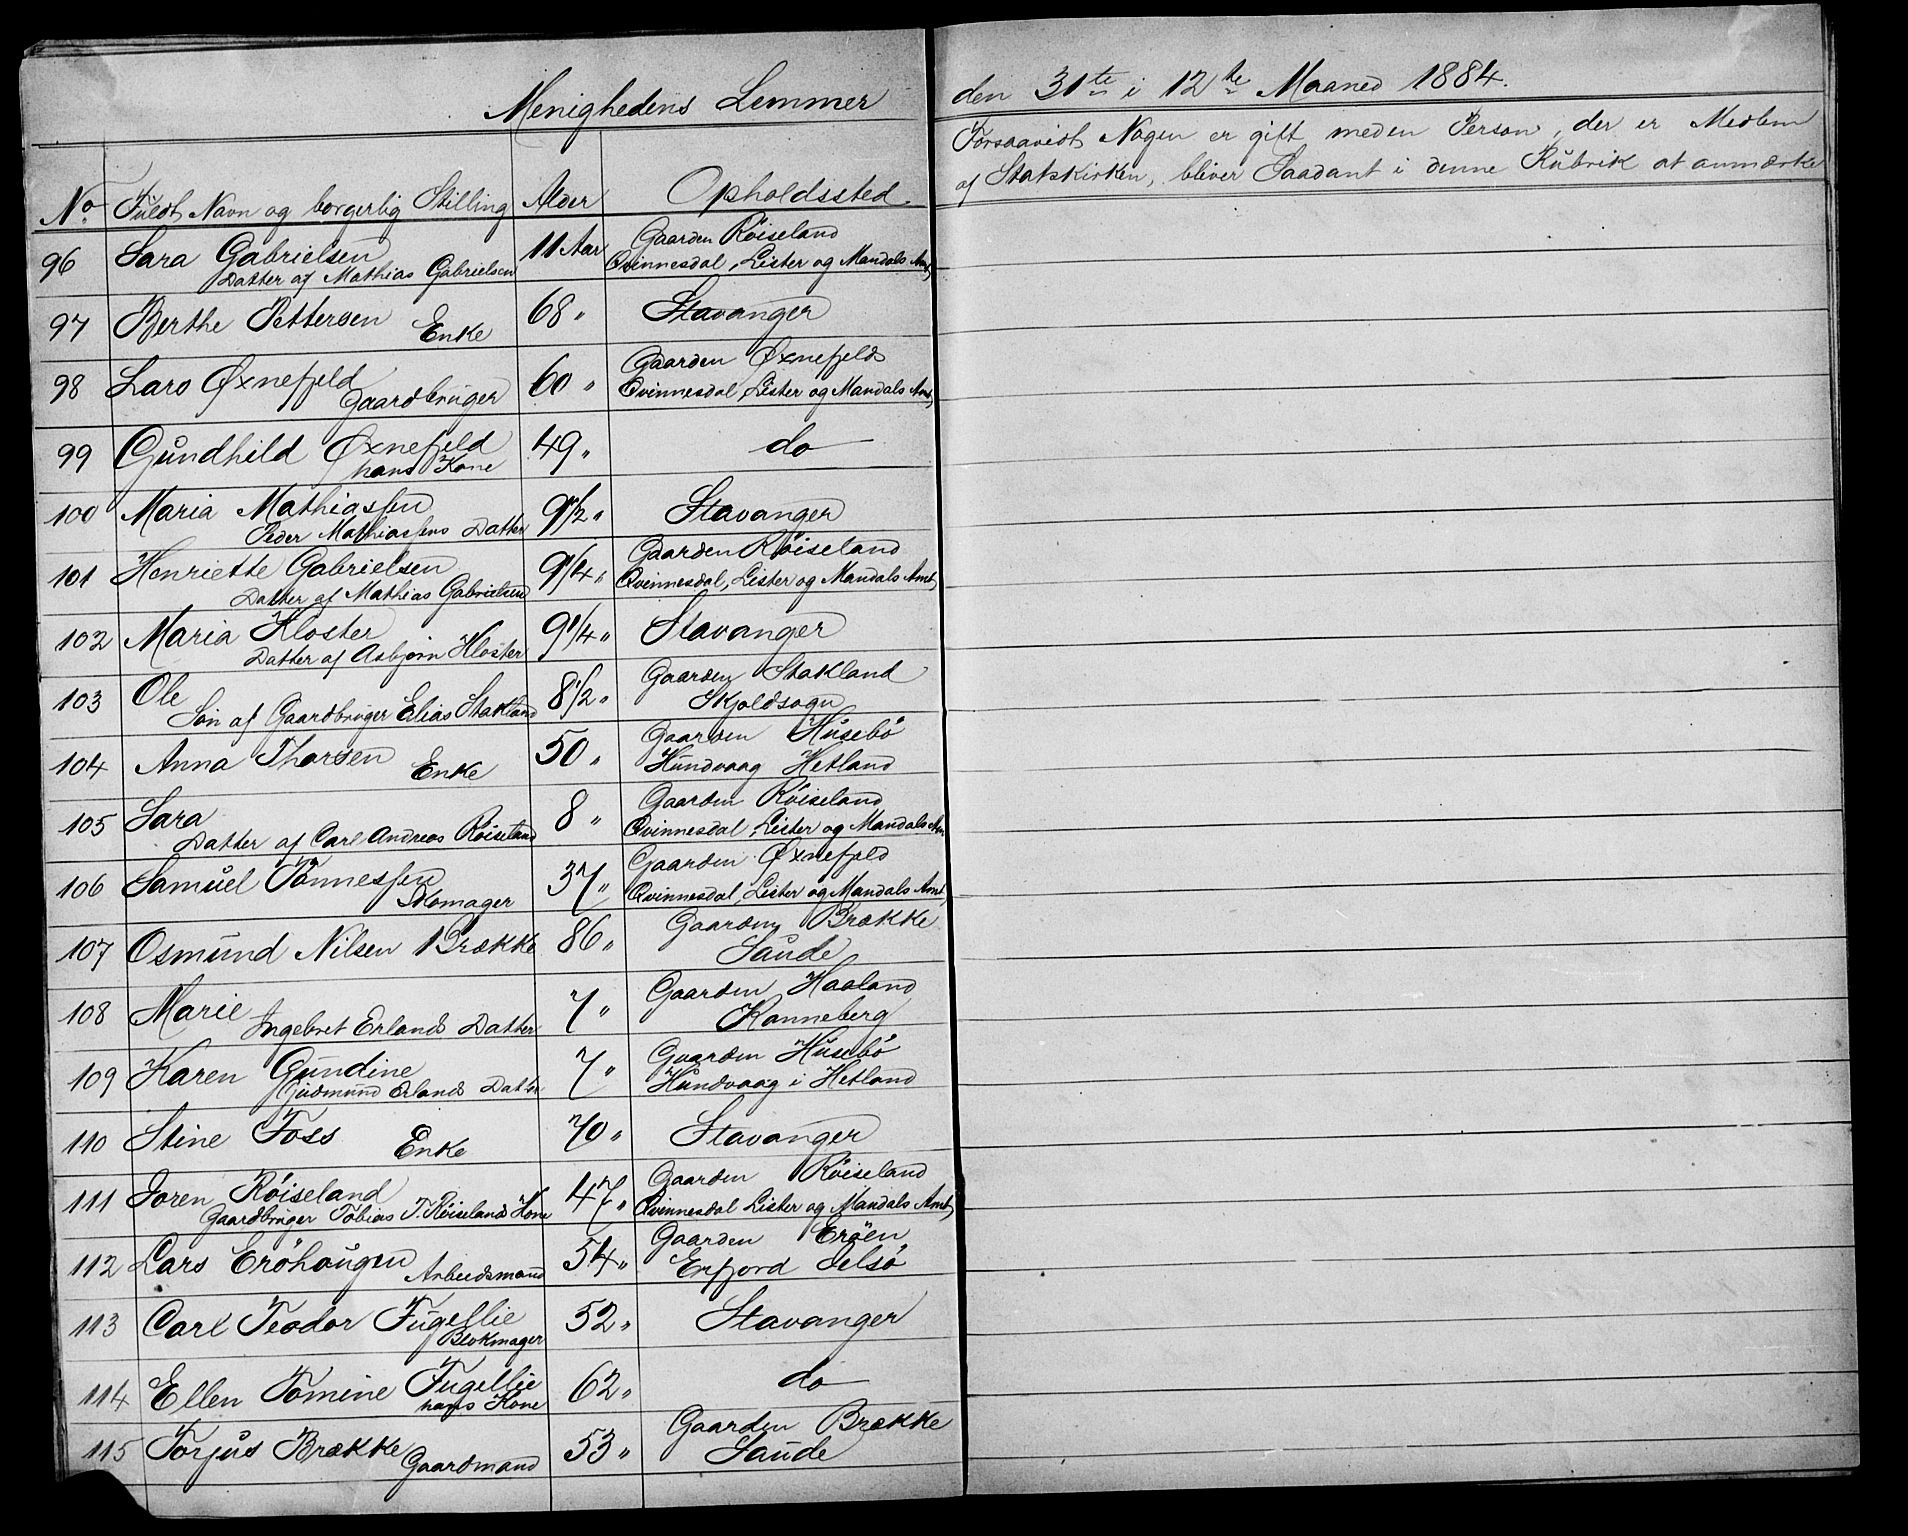 Menighedens Lemmer
No. Fuldt Navn og borgerlig Stilling Alder Opholdssted
96 Sara Gabrielsen 11 Aar Gaarden Röiseland
Datter af Mathias Gabrielsen Qvinnesdal, Lister og Mandals Amt
97 Berthe Pettersen Enke 68 " Stavanger
98 Lars Øxnefjeld 60 " Gaarden Øxnefjeld
Gaardbruger Qvinnesdal, Lister og Mandals Amt
99 Gundhild Øxnefjeld 49 " do
hans Kone
100 Maria Mathiassen 9 1/2 " Stavanger
Peder Mathiassens Datter
101 Henriette Gabrielsen 9 1/4 " Gaarden Röiseland
Datter af Mathias Gabrielsen Qvinnesdal, Lister og Mandals Amt
102 Maria Kloster 9 1/4 " Stavanger
Datter af Asbjörn Kloster
103 Ole 8 1/2 " Gaarden Stakland
Sön af Gaardbruger Elias Stakland Skjoldsogn
104 Anna Thorsen 50 " Gaarden Husebö
Enke Hundvaag Hetland
105 Sara 8 " Gaarden Röiseland
Datter af Carl Andreas Röiseland Qvinnesdal, Lister og Mandals Am
106 Samuel Tönnessen 37 " Gaarden Øxnefjeld
Skomager Qvinnesdal, Lister og Mandals Amt
107 Osmund Nilsen Brække 86 " Gaarden Brække
Saude
108 Marie 7 " Gaarden Haaland
Ingebret Erlands Datter Ranneberg
109 Karen Gundine 7 " Gaarden Husebö
Gudmund Erlands Datter Hundvaag i Hetland
110 Stine Foss Enke 70 " Stavanger
111 Joren Röiseland 47 " Gaarden Röiseland
Gaardbruger Tobias T. Röiselands Kone Qvinnesdal Lister og Mandals Amt
112 Lars Eröhaugen 54 " Gaarden Eröen
Arbeidsmand Erfjord Jelsö
113 Carl Teodor Fugellie 52 " Stavanger
Blokmager
114 Ellen Tomine Fugellie 62 " do
hans Kone
115 Torjus Brække 53 " Gaarden Brække
Gaardmand Saude
den 31te i 12te Maaned 1884.
Forsaavidt Nogen er gift med en Person, der er Medlem
af Statskirken, bliver Saadant i denne Rubrik at anmærke